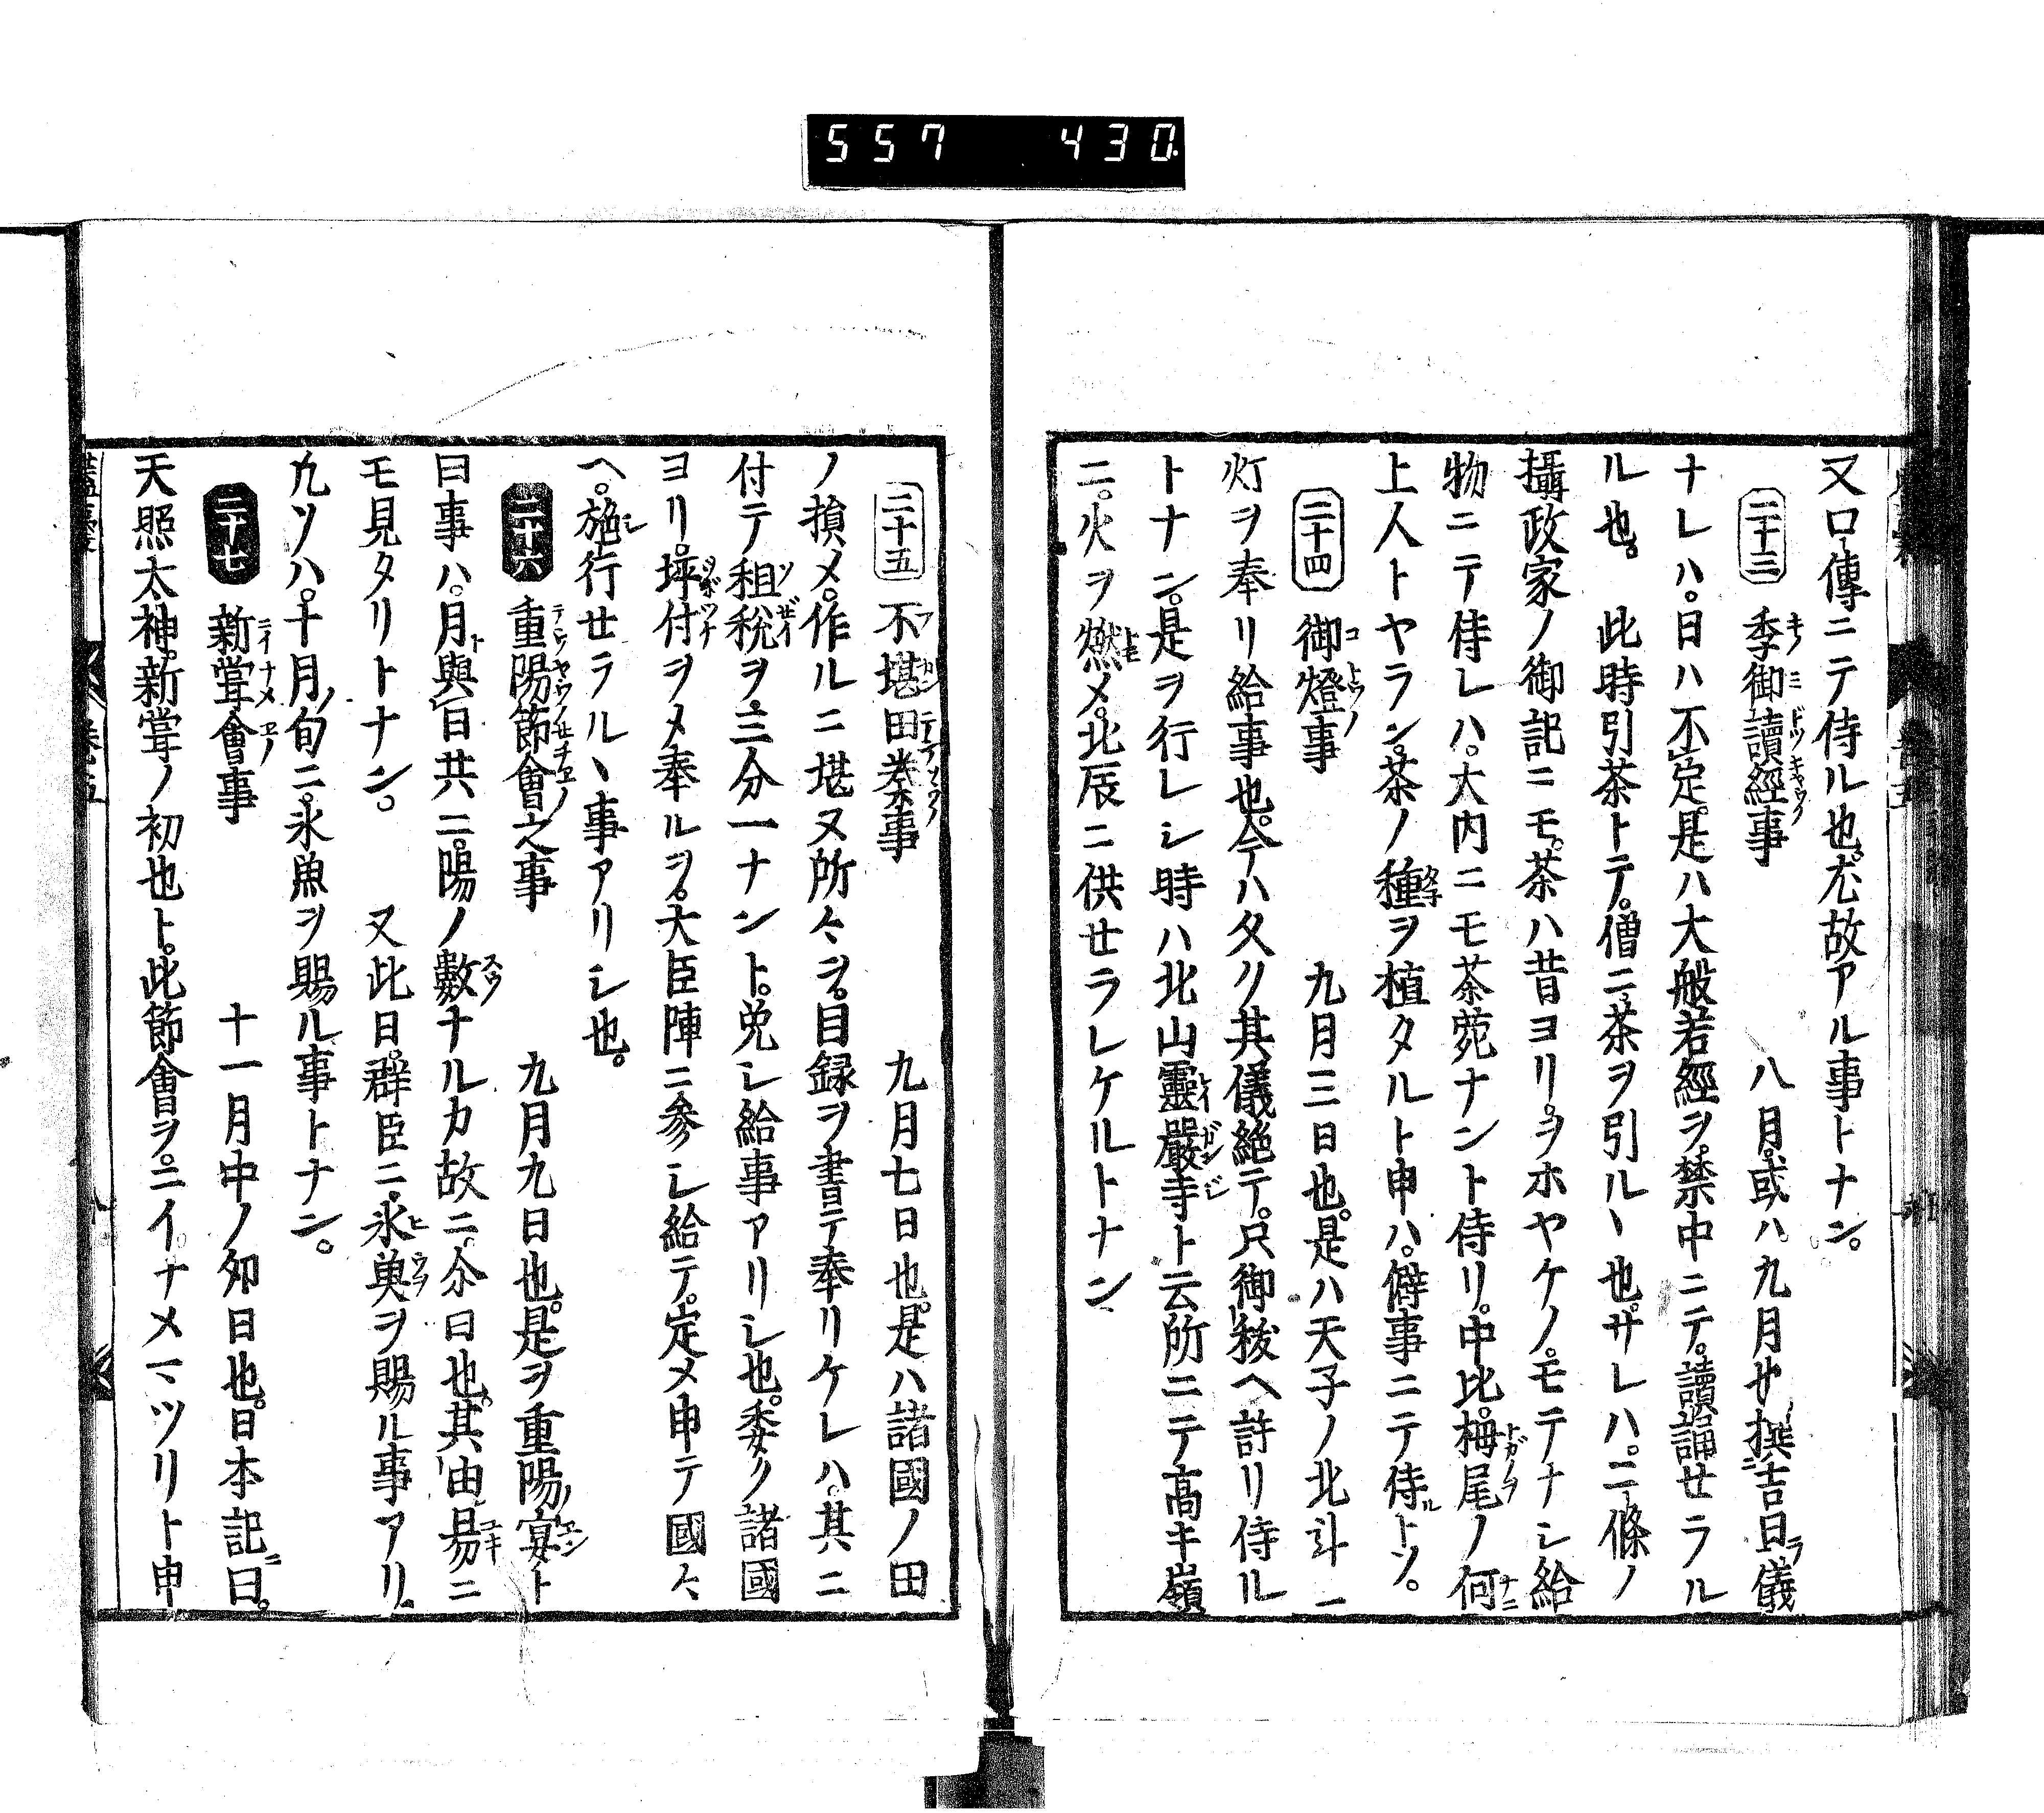 557 430
又口傳ニテ侍ル也。尤故アル事トナン。
二十三 季御讀經事 八月。或ハ九月サ撰吉日儀
ナレハ。日ハ不定。是ハ大般若經ヲ。禁中ニテ。讀誦セラル
ル也。 此時引茶トテ。僧ニ茶ヲ引ルヽ也。サレハ。二條ノ
攝政家ノ御記ニモ。茶ハ昔ヨリ。ヲホヤケノ。モテナシ給
物ニテ侍レハ。大内ニモ茶苑ナント侍リ。中比。栂尾ノ何
上人トヤラン。茶ノ種ヲ植タルト申ハ。僻事ニテ侍ルトソ。
二十四 御燈事 九月三日也。是ハ天子ノ北斗ニ
灯ヲ奉リ給事也。今ハ久ク其儀絶テ。只御秡ヘ許リ侍ル
トナン。是ヲ行レシ時ハ北山靈嚴寺ト云所ニテ高キ嶺
ニ。火ヲ燃メ。北辰ニ供セラレケルトナン
二十五 不堪田奏事 九月七日也。是ハ諸國ノ田
ノ損メ。作ルニ堪ヌ所々ヲ。目録ヲ書テ奉リケレハ。其ニ
付テ租税ヲ。三分一ナント。免シ給事アリシ也。委ク諸國
ヨリ。坪付ヲメ奉ルヲ。大臣陣ニ参シ給テ。定メ申テ國々
ヘ。施行セラルヽ事アリシ也。
二十六 重陽節會之事 九月九日也。是ヲ重陽宴ト
曰事ハ。月與日共ニ。陽ノ數ナルカ故ニ。尒曰也。其由易ニ
モ見タリトナン。 又此日。群臣ニ。氷魚ヲ賜ル事アリ。
九ツハ。十月旬ニ。氷魚ヲ賜ル事トナン。
二十七 新甞會事 十一月中ノ夘日也。日本記曰。
天照太神。新甞ノ初也ト。此節會ヲ。ニイナメマツリト申